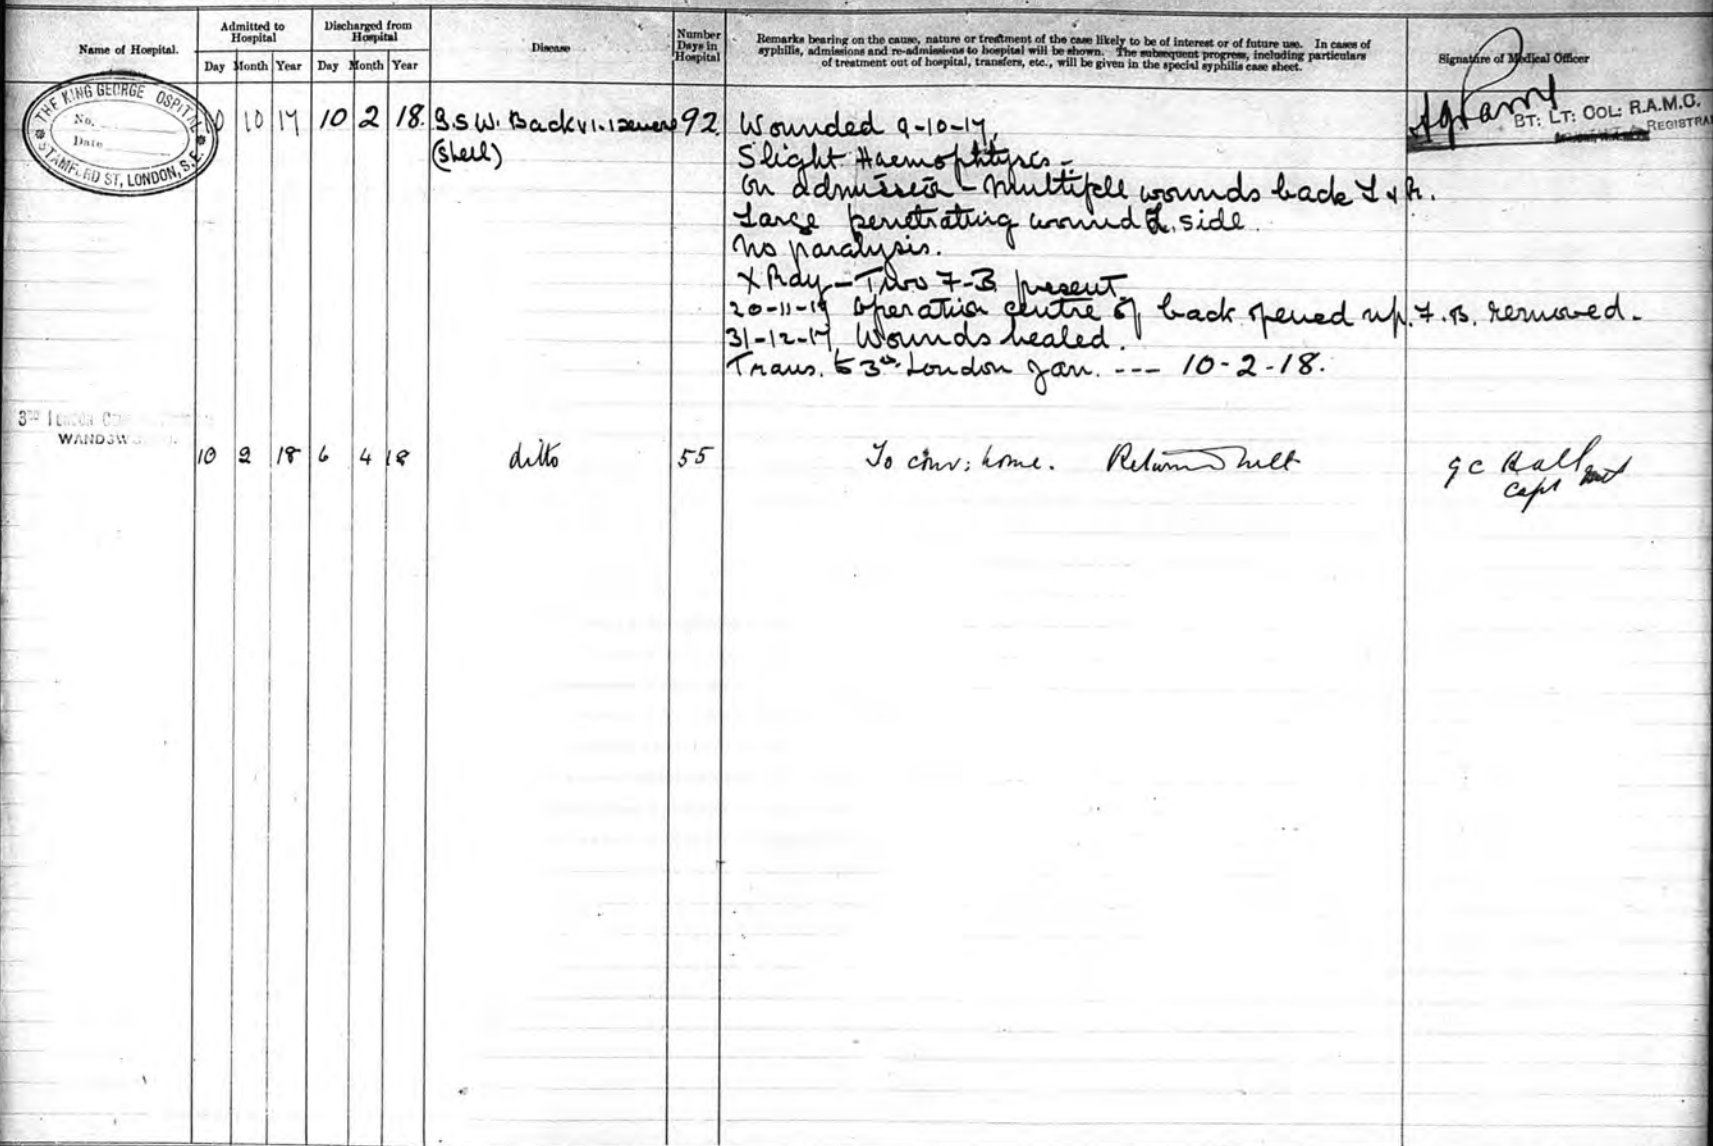 Name of Hospital.
Admitted to Hospital
Day Month Year
Discharged from Hospital
Day Month Year
Disease
Number Days in Hospital
Remarks bearing on the cause, nature or treatment of the case likely to be of interest or of future use. In cases of
syphilis, admissions and re-admissions to hospital will be shown. The subsequent progress, including particulars
of treatment out of hospital, transfers, etc., will be given in the special syphilis case sheet.
Signature of Medical Officer
THE KING GEORGE OSPITAL
No.
Date
STAMFORD ST, LONDON, S.E.
10 17 10 2 18. Back 92.
(Shell)
Wounded 9-10-17.
Slight
On admission - wounds back L & R.
Large penetrating wound L. side
No paralysis.
X Ray - Two F-B present
20-11-17 Operation centre of back opened up. F.B. removed.
31-12-17 Wounds healed.
Trans. to 3rd London --- 10-2-18.
BT: LT: COL: R.A.M.C.
REGISTRA
3RD
WANDSW
10 2 18 6 4 18 ditto 55 To conv: home.
G C Hall
Capt